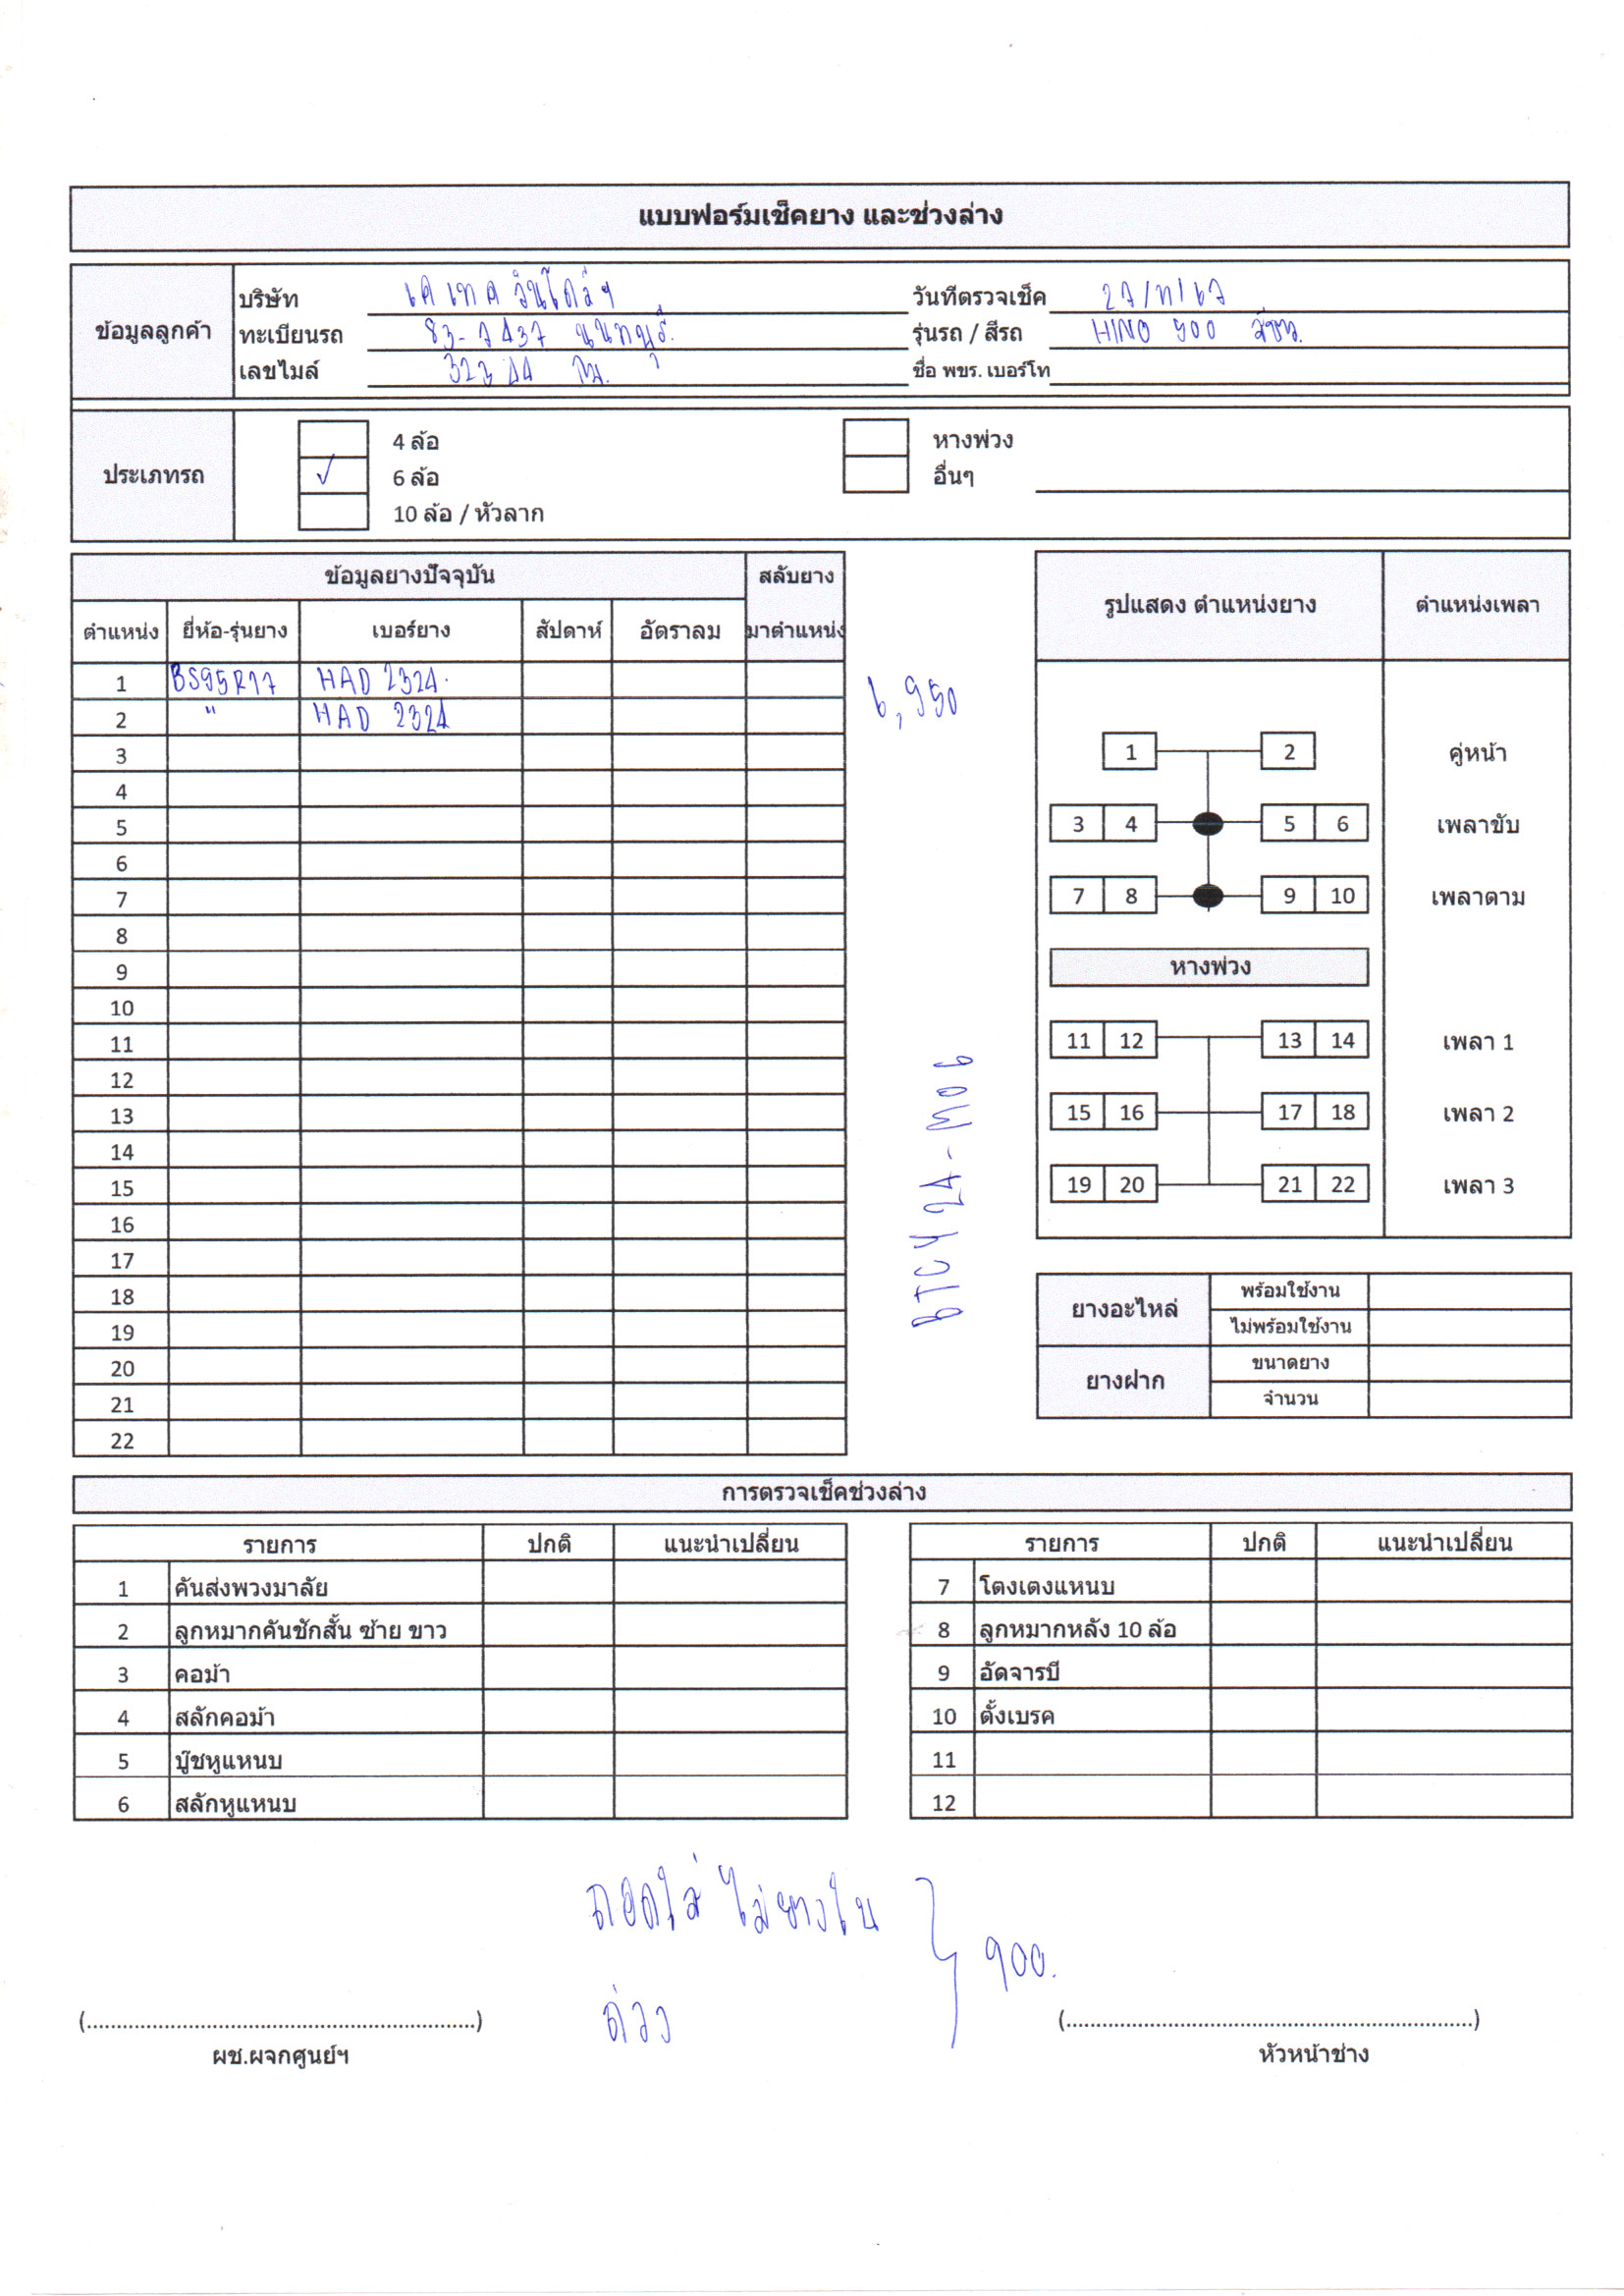 แบบฟอร์มเช็คยาง และช่วงล่าง
ข้อมูลลูกค้า
บริษัท เค เทค
วันที่ตรวจเช็ค
ทะเบียนรถ 83-7437 นนทบุรี
รุ่นรถ / สีรถ HINO 500
เลขไมล์ กม.
ชื่อ พขร. เบอร์โท
ประเภทรถ
4 ล้อ
✓ 6 ล้อ
10 ล้อ / หัวลาก
หางพ่วง
อื่นๆ
ข้อมูลยางปัจจุบัน สลับยาง
ตำแหน่ง ยี่ห้อ-รุ่นยาง เบอร์ยาง สัปดาห์ อัตราลม มาตำแหน่ง
1 BS95R17 HAD 2324
2 " HAD 2324
3
4
5
6
7
8
9
10
11
12
13
14
15
16
17
18
19
20
21
22
6,950
BTCY24-M06
รูปแสดง ตำแหน่งยาง ตำแหน่งเพลา
1 2 คู่หน้า
3 4 5 6 เพลาขับ
7 8 9 10 เพลาตาม
หางพ่วง
11 12 13 14 เพลา 1
15 16 17 18 เพลา 2
19 20 21 22 เพลา 3
ยางอะไหล่ พร้อมใช้งาน
ไม่พร้อมใช้งาน
ยางฝาก ขนาดยาง
จำนวน
การตรวจเช็คช่วงล่าง
รายการ ปกติ แนะนำเปลี่ยน
1 คันส่งพวงมาลัย
2 ลูกหมากคันชักสั้น ซ้าย ขาว
3 คอม้า
4 สลักคอม้า
5 บู๊ชหูแหนบ
6 สลักหูแหนบ
รายการ ปกติ แนะนำเปลี่ยน
7 โตงเตงแหนบ
8 ลูกหมากหลัง 10 ล้อ
9 อัดจารบี
10 ตั้งเบรค
11
12
ถอดใส่ ไม่ยางใน
ถ่วง
900.
(................................................................)
ผช.ผจกศูนย์ฯ
(................................................................)
หัวหน้าช่าง